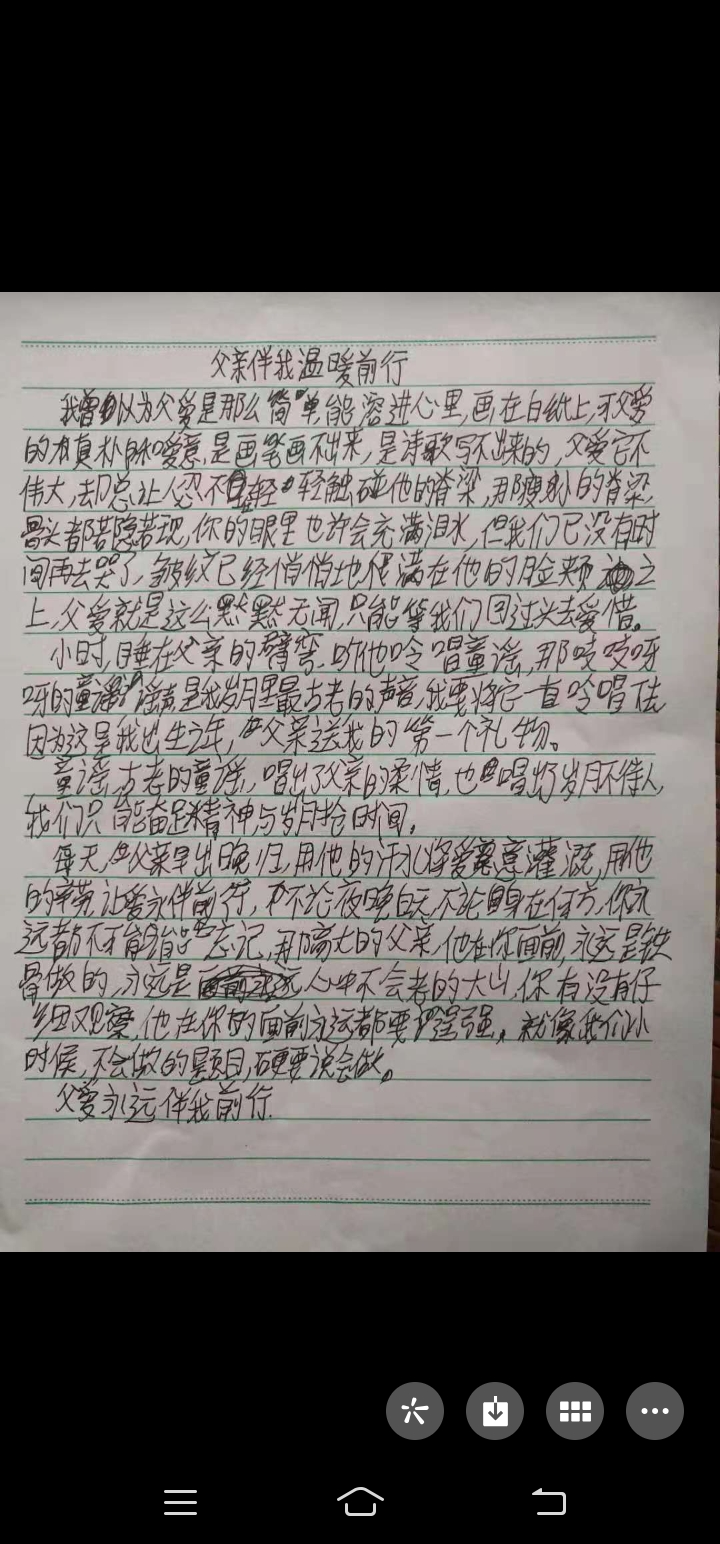 父亲伴我温暖前行
我曾以为父爱是那么简单,能溶进心里,画在白纸上,不父爱
的真朴和爱意,是画笔画不出来,是诗歌写不出来的,父爱它不
伟大,却总让人忍不住轻轻触碰他的脊梁,那瘦小的脊梁,
骨头都若隐若现,你的眼里也许会充满泪水,但我们已没有时
间再去哭了,皱纹已经悄悄地偎满在他的脸颊之
上,父爱就是这么默默无闻,只能等我们回过头去爱惜。
小时,睡在父亲的臂弯,听他吟唱童谣,那咬咬呀
呀的童谣声是我岁月里最古老的声音,我要将它一直吟唱住
因为这是我出生之年,父亲送我的第一个礼物。
童谣,古老的童谣,唱出了父亲的柔情,也唱出了岁月不待人,
我们只能奋足精神与岁月抢时间。
每天,父亲早出晚归,用他的汗水将爱意灌溉,用他
的辛劳,让爱永伴前行,不论夜晚白天,不论身在何方,你永
远都不可能忘记,那高大的父亲,他在你面前,永远是铁
骨做的,永远是心中不会老的大山,你有没有仔
细观察,他在你的面前永远都要逞强。就像我们小
时候,不会做的题目,硬要说会做。
父爱永远伴我前行.